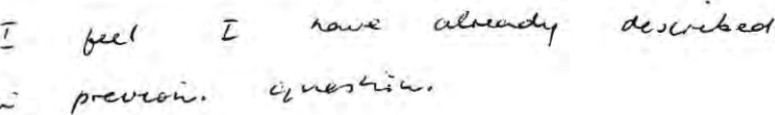 I feel I have already described
in previous question.